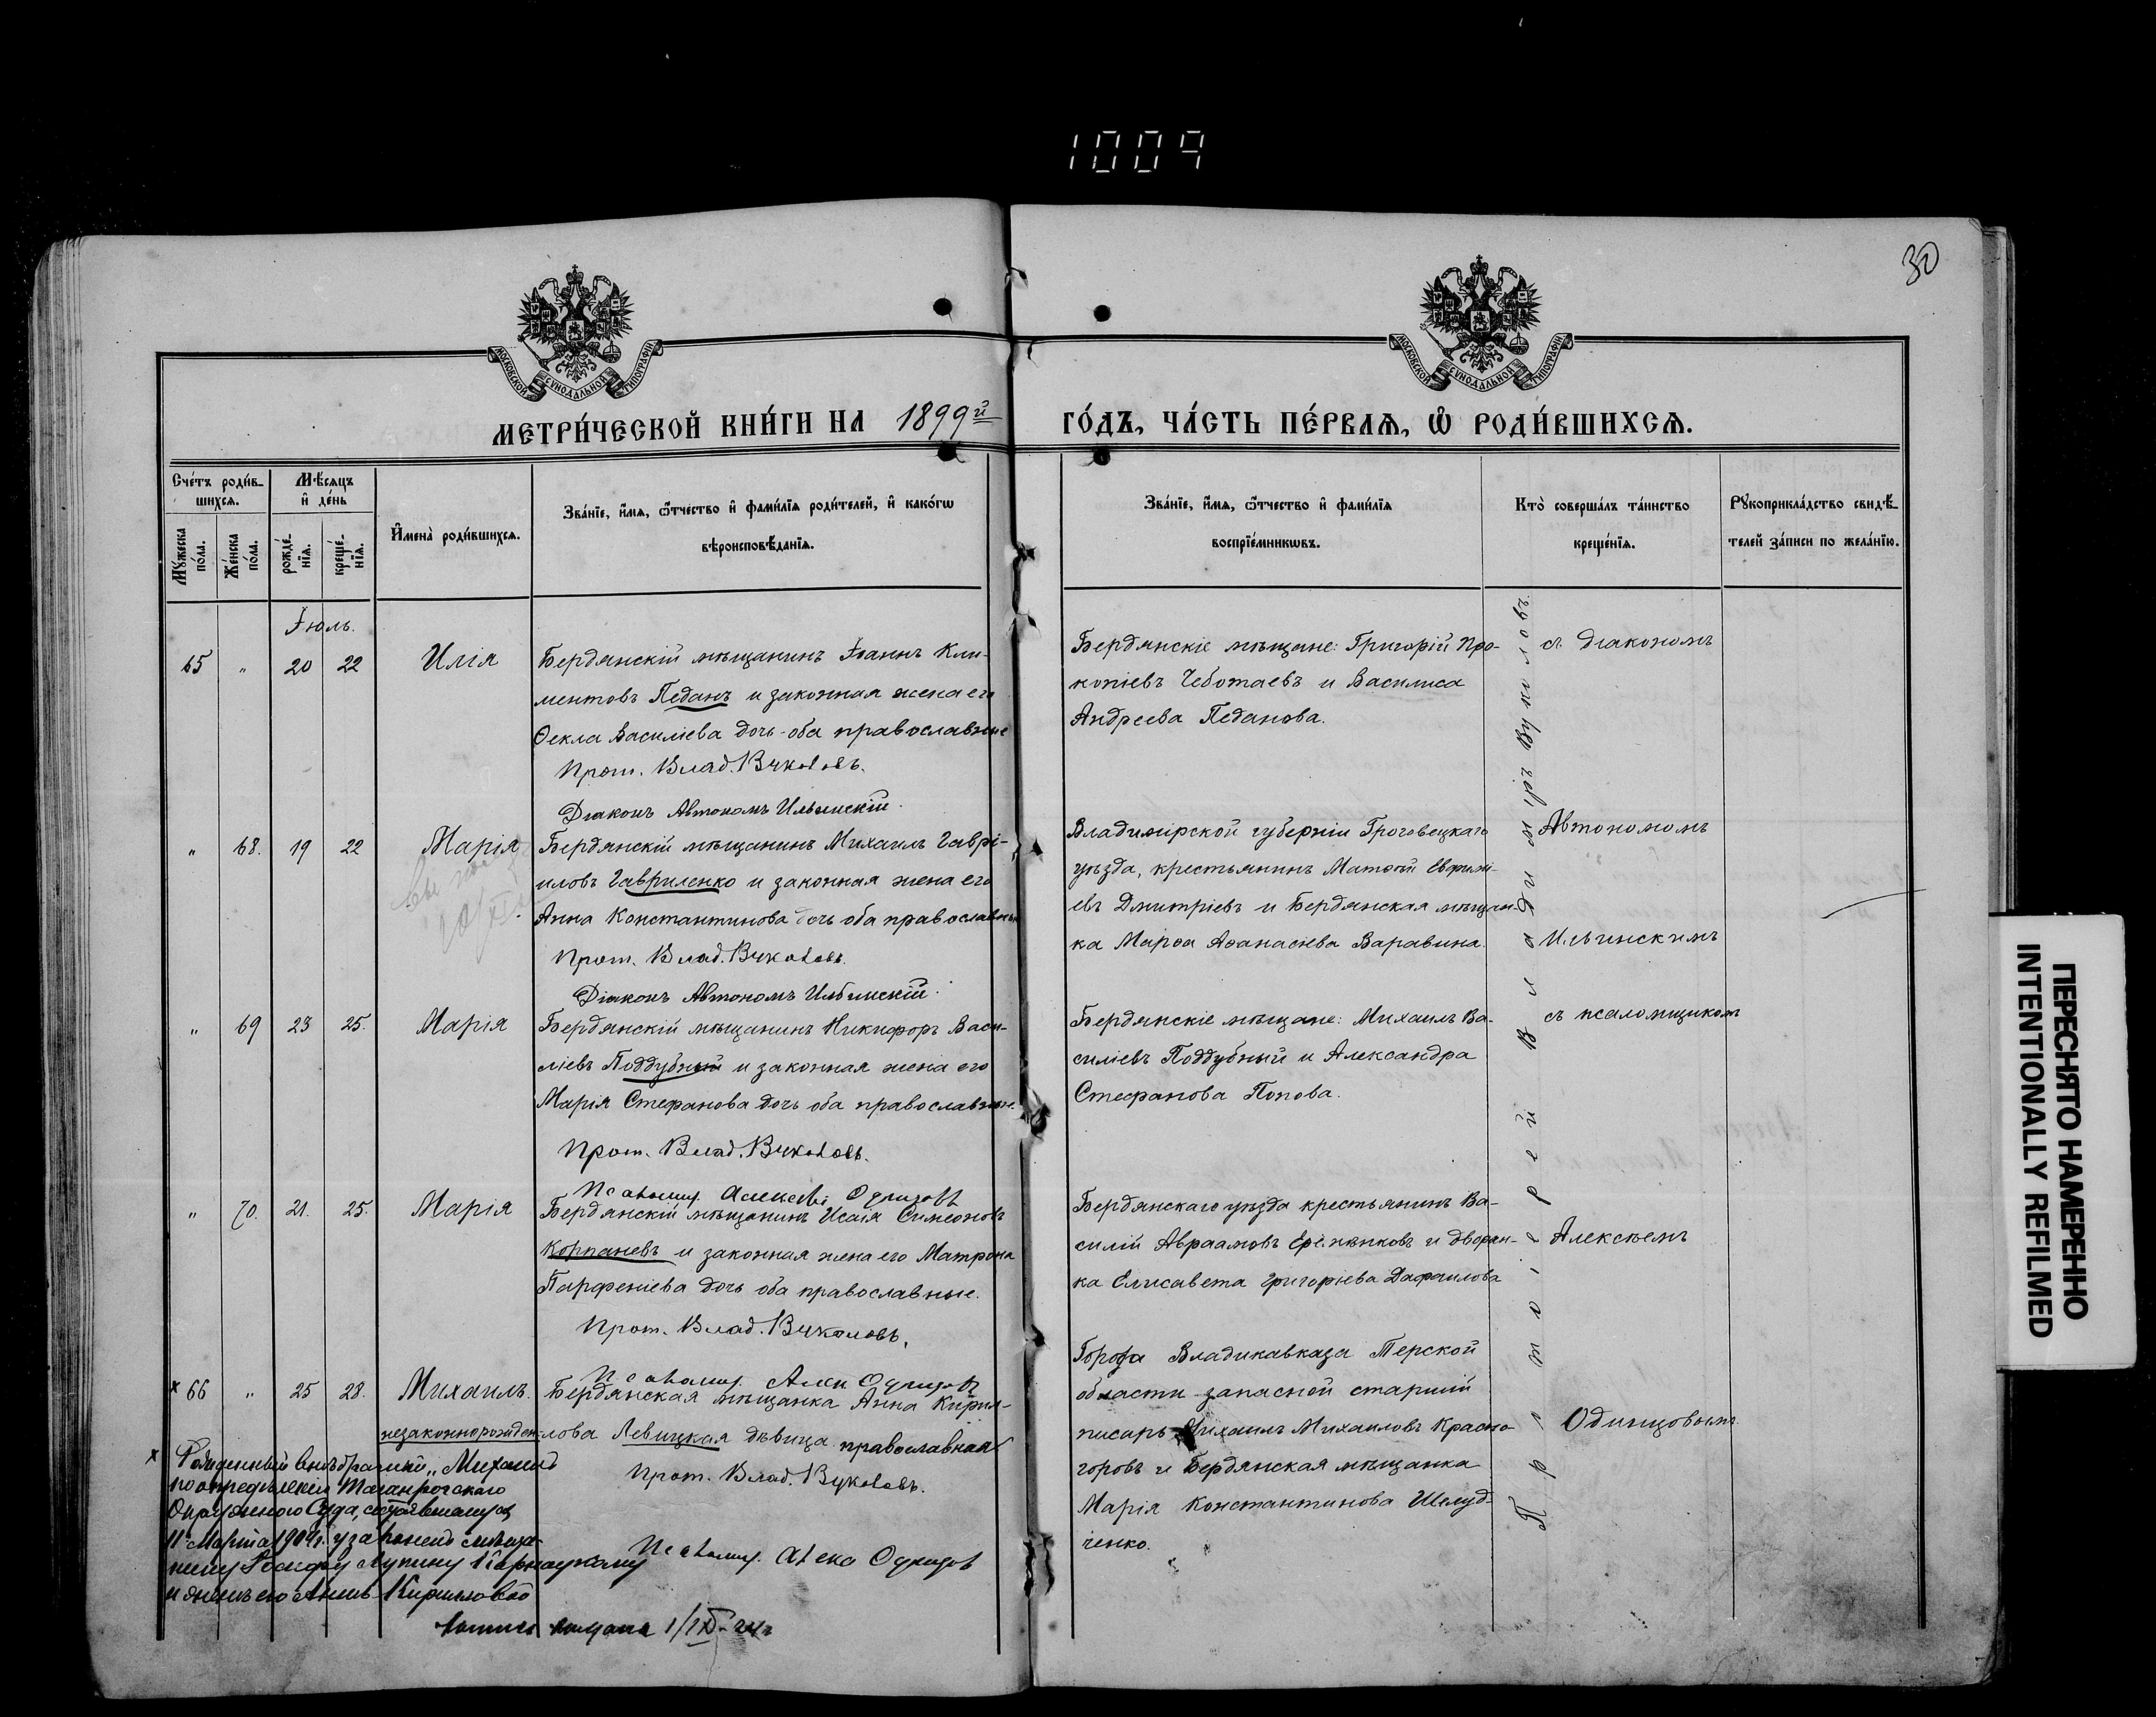 1009
30
МОСКОВСКОЙ СУНОДАЛЬНОЙ ТИПОГРАФІИ
МОСКОВСКОЙ СУНОДАЛЬНОЙ ТИПОГРАФІИ
МЕТРИ́ЧЕСКОЙ КНИ́ГИ НА 1899й
ГО́ДЪ, ЧА́СТЬ ПЕ́РВАѦ, Ѡ҆ РОДИ́ВШИХСѦ.
Сче́тъ роди́в-
шихсѧ.
Мꙋ́жеска
по́ла.
Же́нска
по́ла.
Мѣ́сѧцъ
и҆ де́нь
рожде́-
нїѧ.
креще́-
нїѧ.
И҆мена̀ роди́вшихсѧ.
Зва́нїе, и҆́мѧ, ѻ҆́тчество и҆ фами́лїѧ роди́телей, и҆ како́гѡ
вѣроисповѣ́данїѧ.
Зва́нїе, и҆́мѧ, ѻ҆́тчество и҆ фами́лїѧ
воспрїе́мникѡвъ.
Кто̀ соверша́лъ та́инство
креще́нїѧ.
Рꙋкоприкла́дство свидѣ́-
телей за́писи по жела́нїю.
Іюль.
65 " 20 22 Илія
Бердянскій мѣщанинъ Іоаннъ Кли-
ментовъ Педанъ и законная жена его
Ѳекла Василіева дочь оба православные
Прот. Влад. Вуколовъ.
Діаконъ Автономъ Ильинскій.
Бердянскіе мѣщане: Григорій Про-
копіевъ Чеботаевъ и Василиса
Андреева Педанова.
съ діакономъ
" 68. 19 22 Марія
Бердянскій мѣщанинъ Михаилъ Гаврі-
иловъ Гавриленко и законная жена его
Анна Константинова дочь оба православные
Прот. Влад. Вуколовъ.
Діаконъ Автономъ Ильинскій.
Владимірской губерніи Гроховецкаго
уѣзда, крестьянинъ Матѳей Евфимі-
евъ Дмитріевъ и Бердянская мѣщан-
ка Марѳа Аѳанасіева Варавина.
Автономомъ
Ильинскимъ
" 69 23 25. Марія
Бердянскій мѣщанинъ Никифоръ Васи-
ліевъ Поддубный и законная жена его
Марія Стефанова дочь оба православные.
Прот. Влад. Вуколовъ.
Псаломщ. Алексѣй Одинцовъ
Бердянскіе мѣщане: Михаилъ Ва-
силіевъ Поддубный и Александра
Стефанова Попова.
съ псаломщикомъ
" 70. 21. 25. Марія
Бердянскій мѣщанинъ Исаія Симеоновъ
Корпаневъ и законная жена его Матрона
Парфеніева дочь оба православные.
Прот. Влад. Вуколовъ.
Псаломщ. Алек Одинцовъ
Бердянскаго уѣзда крестьянинъ Ва-
силій Авраамовъ и дворян-
ка Елисавета Григоріева
Алексѣемъ
х 66 " 25 28. Михаилъ.
незаконнорожден.
Бердянская мѣщанка Анна Кирил-
лова Левицкая дѣвица православная
Прот. Влад. Вуколовъ.
Псаломщ. Алекс Одинцов
Города Владикавказа Терской
области запасной старшій
писарь Михаилъ Михаиловъ Красно-
горовъ и Бердянская мѣщанка
Марія Константинова Шелуд-
ченко.
Одинцовымъ
Протоіерей Владиміръ Вуколовъ.
х Рожденный внѣ брака „Михаилъ
по опредѣленію Таганрогскаго
Окружного Суда, состоявшемуся
11 Марта 1904 г. узаконенъ мѣща-
нину
и женѣ его Аннѣ Кирилловой
выдана 1/IX-24г
ПЕРЕСНЯТО НАМЕРЕННО
INTENTIONALLY REFILMED